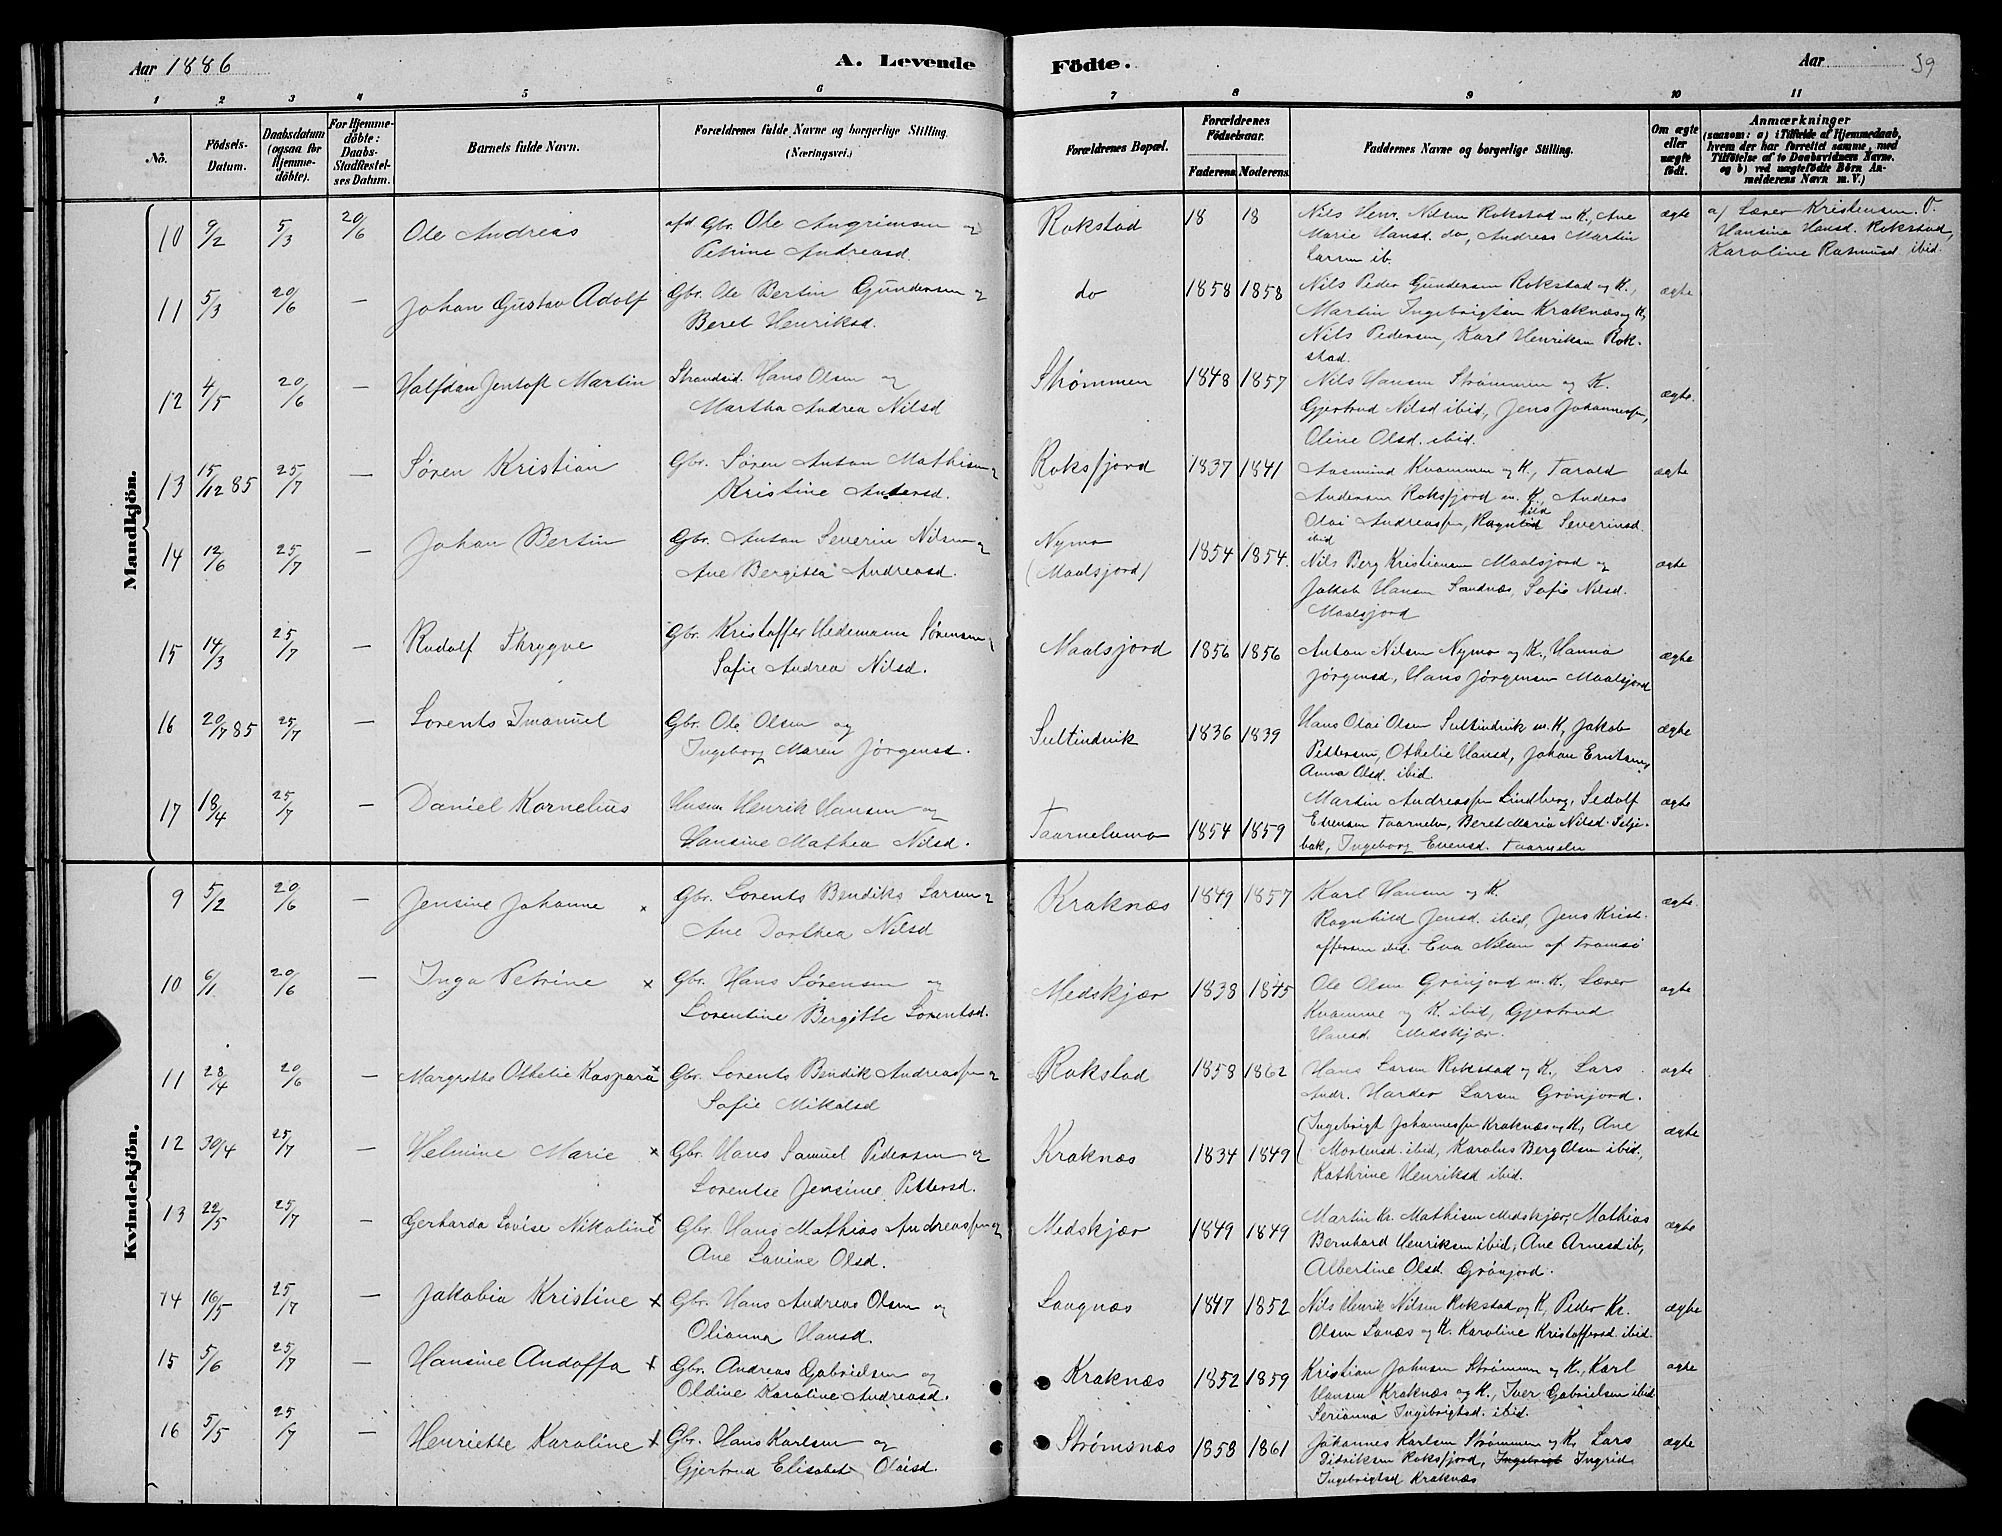 Aar 1886
A. Levende
Födte.
Aar
39
1 2 3 4 5 6 7 8 9 10 11
No.
Födsels-
Datum.
Daabsdatum
(ogsaa for
Hjemme-
döbte).
For Hjemme-
döbte:
Daabs-
Stadfæstel-
ses Datum.
Barnets fulde Navn.
Forældrenes fulde Navne og borgerlige Stilling.
(Næringsvei.)
Forældrenes Bopæl.
Forældrenes
Födselsaar.
Faderens
Moderens
Faddernes Navne og borgerlige Stilling.
Om ægte
eller
uægte
födt.
Anmærkninger
(saasom: a) i Tilfælde af Hjemmedaab,
hvem der har forrettet samme, med
Tilföielse af to Daabsvidners Navne.
og b) ved uægtefödte Börn An-
melderens Navn m. V.)
Mandkjön.
10 9/2 5/3 20/6 Ole Andreas
afd Gbr. Ole Angrimsen og
Petrine Andreasd.
Rokstad 18 18
Nils Henr. Nilsen Rokstad m K, Ane
Marie Hansd. do, Andreas Martin
Larsen ib.
ægte
a) Lærer Kristensen. V.
Hansine Hansd. Rokstad,
Karoline Rasmusd ibid.
11 5/3 20/6 — Johan Gustav Adolf
Gbr. Ole Bertin Gundersen og
Beret Henriksd.
do 1858 1858
Nils Peder Gundersen Rokstad og K.,
Martin Ingebrigtsen Kraknæs og K,
Nils Pedersen, Karl Henriksen Rok-
stad.
ægte
12 4/5 20/6 — Halfdan Jentoft Martin
Strandsid. Hans Olsen og
Martha Andrea Nilsd
Strømmen 1848 1857
Nils Hansen Strømmen og K.
Gjertrud Nilsd ibid, Jens Johannessen,
Oline Olsd. ibid.
ægte.
13 15/12 85 25/7 — Søren Kristian
Gbr. Søren Anton Mathisen og
Kristine Andersd.
Roksfjord 1837 1841
Aasmund Kvammen og K., Tarald
Andersen Roksfjord m. K, Anders
Olai Andreassen, Ragnhild Severinsd
ibid
ægte
14 12/6 25/7 — Johan Bertin
Gbr. Anton Severin Nilsen og
Ane Bergitta Andreasd.
Nymo
(Maalsjord) 1854 1854.
Nils Berg Kristiansen Maalsjord og
Jakob Hansen Sandnæs, Sofie Nilsd.
Maalsjord
ægte
15 14/3 25/7 — Rudolf Thrygve
Gbr. Kristoffer Hedemann Sørensen og
Sofie Andrea Nilsd.
Maalsjord 1856 1856
Anton Nilsen Nymo og K., Hanna
Jørgensd, Hans Jørgensen Maalsjord
ægte
16 20/7 85 25/7 — Lorents Imanuel
Gbr. Ole Olsen og
Ingeborg Maren Jørgensd.
Sultindvik 1836 1839
Hans Olai Olsen Sultindvik m. K, Jakob
Pettersen, Othelie Hansd, Johan Erntsen,
Anna Olsd. ibid.
ægte
17 18/4 25/7 — Daniel Kornelius
Husm Henrik Hansen og
Hansine Mathea Nilsd.
Taarnelvmo 1854 1859
Martin Andreassen Lindberg, Sedolf
Evensen Taarnelv, Beret Maria Nilsd. Selje-
bak, Ingeborg Evensd. Taarnelv
ægte
Kvindekjön.
9 5/2 20/6 — Jensine Johanne x
Gbr. Lorents Bendiks Larsen og
Ane Dorthea Nilsd
Kraknæs 1849 1857
Karl Hansen og K.
Ragnhild Jensd. ibid, Jens Krist-
offersen ibid. Eva Nilsen af Tromsø
ægte.
10 6/1 20/6 — Inga Petrine x
Gbr. Hans Sørensen og
Lorentine Bergitte Lorentsd.
Medskjær 1838 1845
Ole Olsen Grønjord m. K, Lærer
Kvamme og K. ibid, Gjertrud
Hansd. Medskjær.
ægte
11 28/4 20/6 — Margrethe Othelie Kaspara x
Gbr. Lorents Bendik Andreassen og
Sofie Mikalsd
Rokstad 1858 1862
Hans Larsen Rokstad og K., Lars
Andr. Harder Larsen Grønjord.
ægte
12 30/4 25/7 — Helmine Marie x
Gbr. Hans Samuel Pedersen og
Lorentse Jensine Pettersd.
Kraknæs 1834 1849
Ingebrigt Johannessen Kraknæs og K, Ane
Mortensd. ibid, Karolus Berg Olsen ibid.,
Kathrine Henriksd ibid.
ægte
13 22/5 25/7 — Gerharda Lovise Nikoline x
Gbr. Hans Mathias Andreassen og
Ane Lovine Olsd.
Medskjær 1849 1849
Martin Kr. Mathisen Medskjær, Mathias
Bernhard Henriksen ibid, Ane Arnesd ib,
Albertine Olsd. Grønjord.
ægte
14 16/5 25/7 — Jakobia Kristine x
Gbr. Hans Andreas Olsen og
Olianna Hansd.
Langnæs 1847 1852
Nils Henrik Nilsen Rokstad og K, Peder Kr.
Olsen Lanæs og K. Karoline Kristoffersd ibid.
ægte
15 5/6 25/7 — Hansine Andoffa x
Gbr. Andreas Gabrielsen og
Oldine Karoline Andreasd.
Kraknæs 1852 1859
Kristian Johnsen Strømmen og K., Karl
Hansen Kraknæs og K., Iver Gabrielsen ibid
Serianna Ingebrigtsd. ibid.
ægte
16 5/5 25/7 — Henriette Karoline x
Gbr. Hans Karlsen og
Gjertrud Elisabet Olaisd.
Strømsnæs 1858 1861
Johannes Karlsen Strømmen og K. Lars
Didriksen Roksfjord, Ingebrigt Ingrid
Ingebrigtsd Kraknæs
ægte